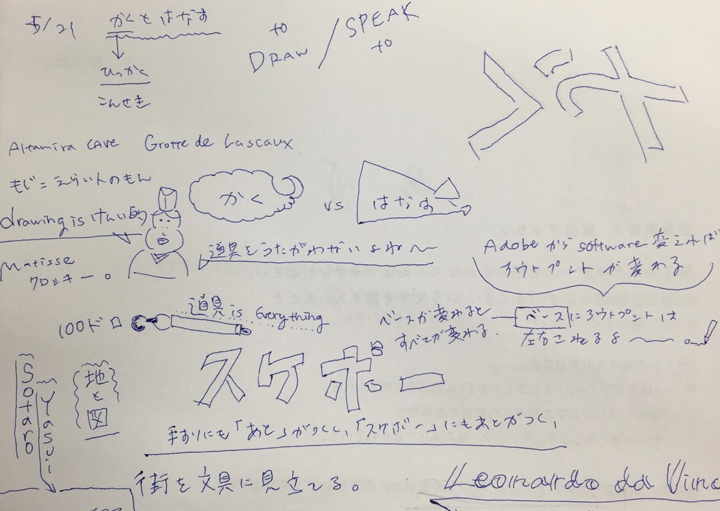 5/21 かくとはなす
ひっかく
こんせき
to DRAW / to SPEAK
Altamira CAVE Grotte de Lascaux
もじ=えらい人のもん
drawing is けんい的
かく vs はなす
道具をうたがわないよね〜
Matisse
クロッキー。
Adobeからsoftware変えれば
アウトプットが変わる
道具 is Everything
100ドロ
ベースが変わると
すべてが変わる。
ベースにアウトプットは
左右されるよ〜
スケボー
Sotaro Yasui
地と図
手すりにも「あと」がつくし、「スケボー」にもあとがつく。
街を文具に見立てる。
Leonardo da Vinc